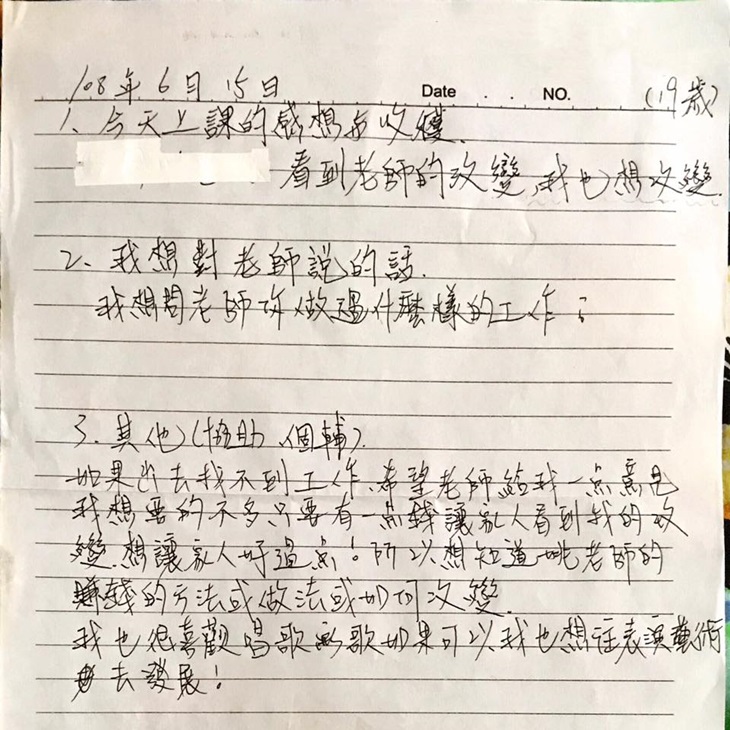 108年6月15日 Date . . NO. (19歲)
1、今天上課的感想与收穫.
看到老師的改變,我也想改變.
2、我想對老師說的話.
我想問老師你做過什麼樣的工作?
3、其他(協助、個輔).
如果出去找不到工作、希望老師給我一點意見
我想要的不多只要有一点錢讓家人看到我的改
變.想讓家人好過点!所以想知道姚老師的
賺錢的方法或做法或如何改變.
我也很喜觀唱歌 歌如果可以我也想往表演藝術
去發展!